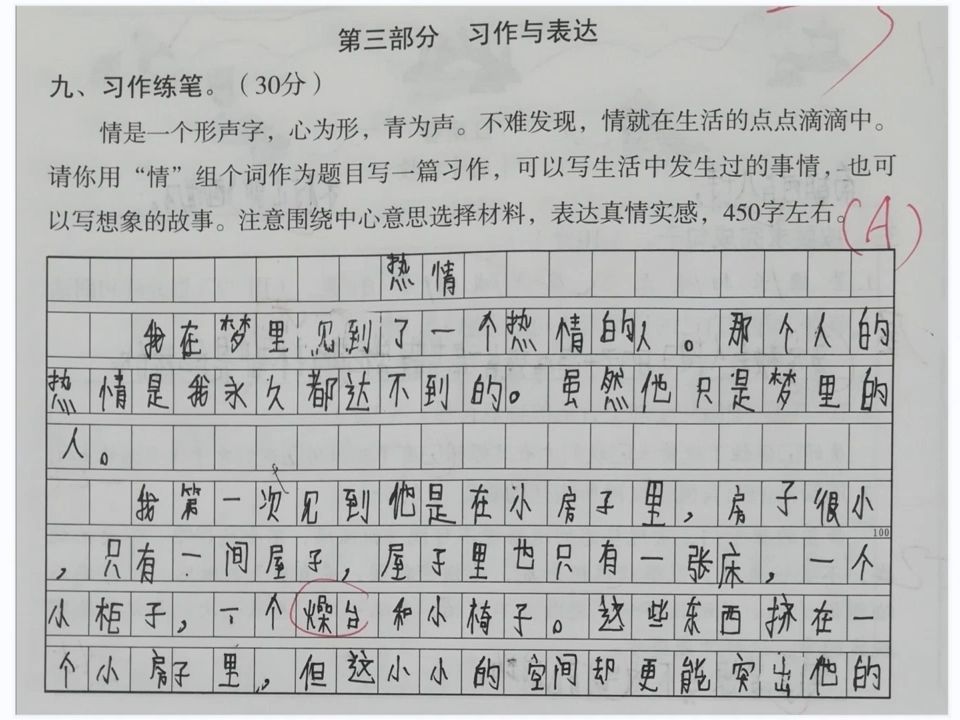 第三部分 习作与表达
九、习作练笔。（30分）
情是一个形声字，心为形，青为声。不难发现，情就在生活的点点滴滴中。
请你用“情”组个词作为题目写一篇习作，可以写生活中发生过的事情，也可
以写想象的故事。注意围绕中心意思选择材料，表达真情实感，450字左右。
(A)
热情
我在梦里见到了一个热情的人。那个人的
热情是我永久都达不到的。虽然他只是梦里的
人。
我第一次见到他是在小房子里，房子很小
100
，只有一间屋子，屋子里也只有一张床，一个
小柜子，一个燥台和小椅子。这些东西挤在一
个小房子里，但这小小的空间却更能突出他的